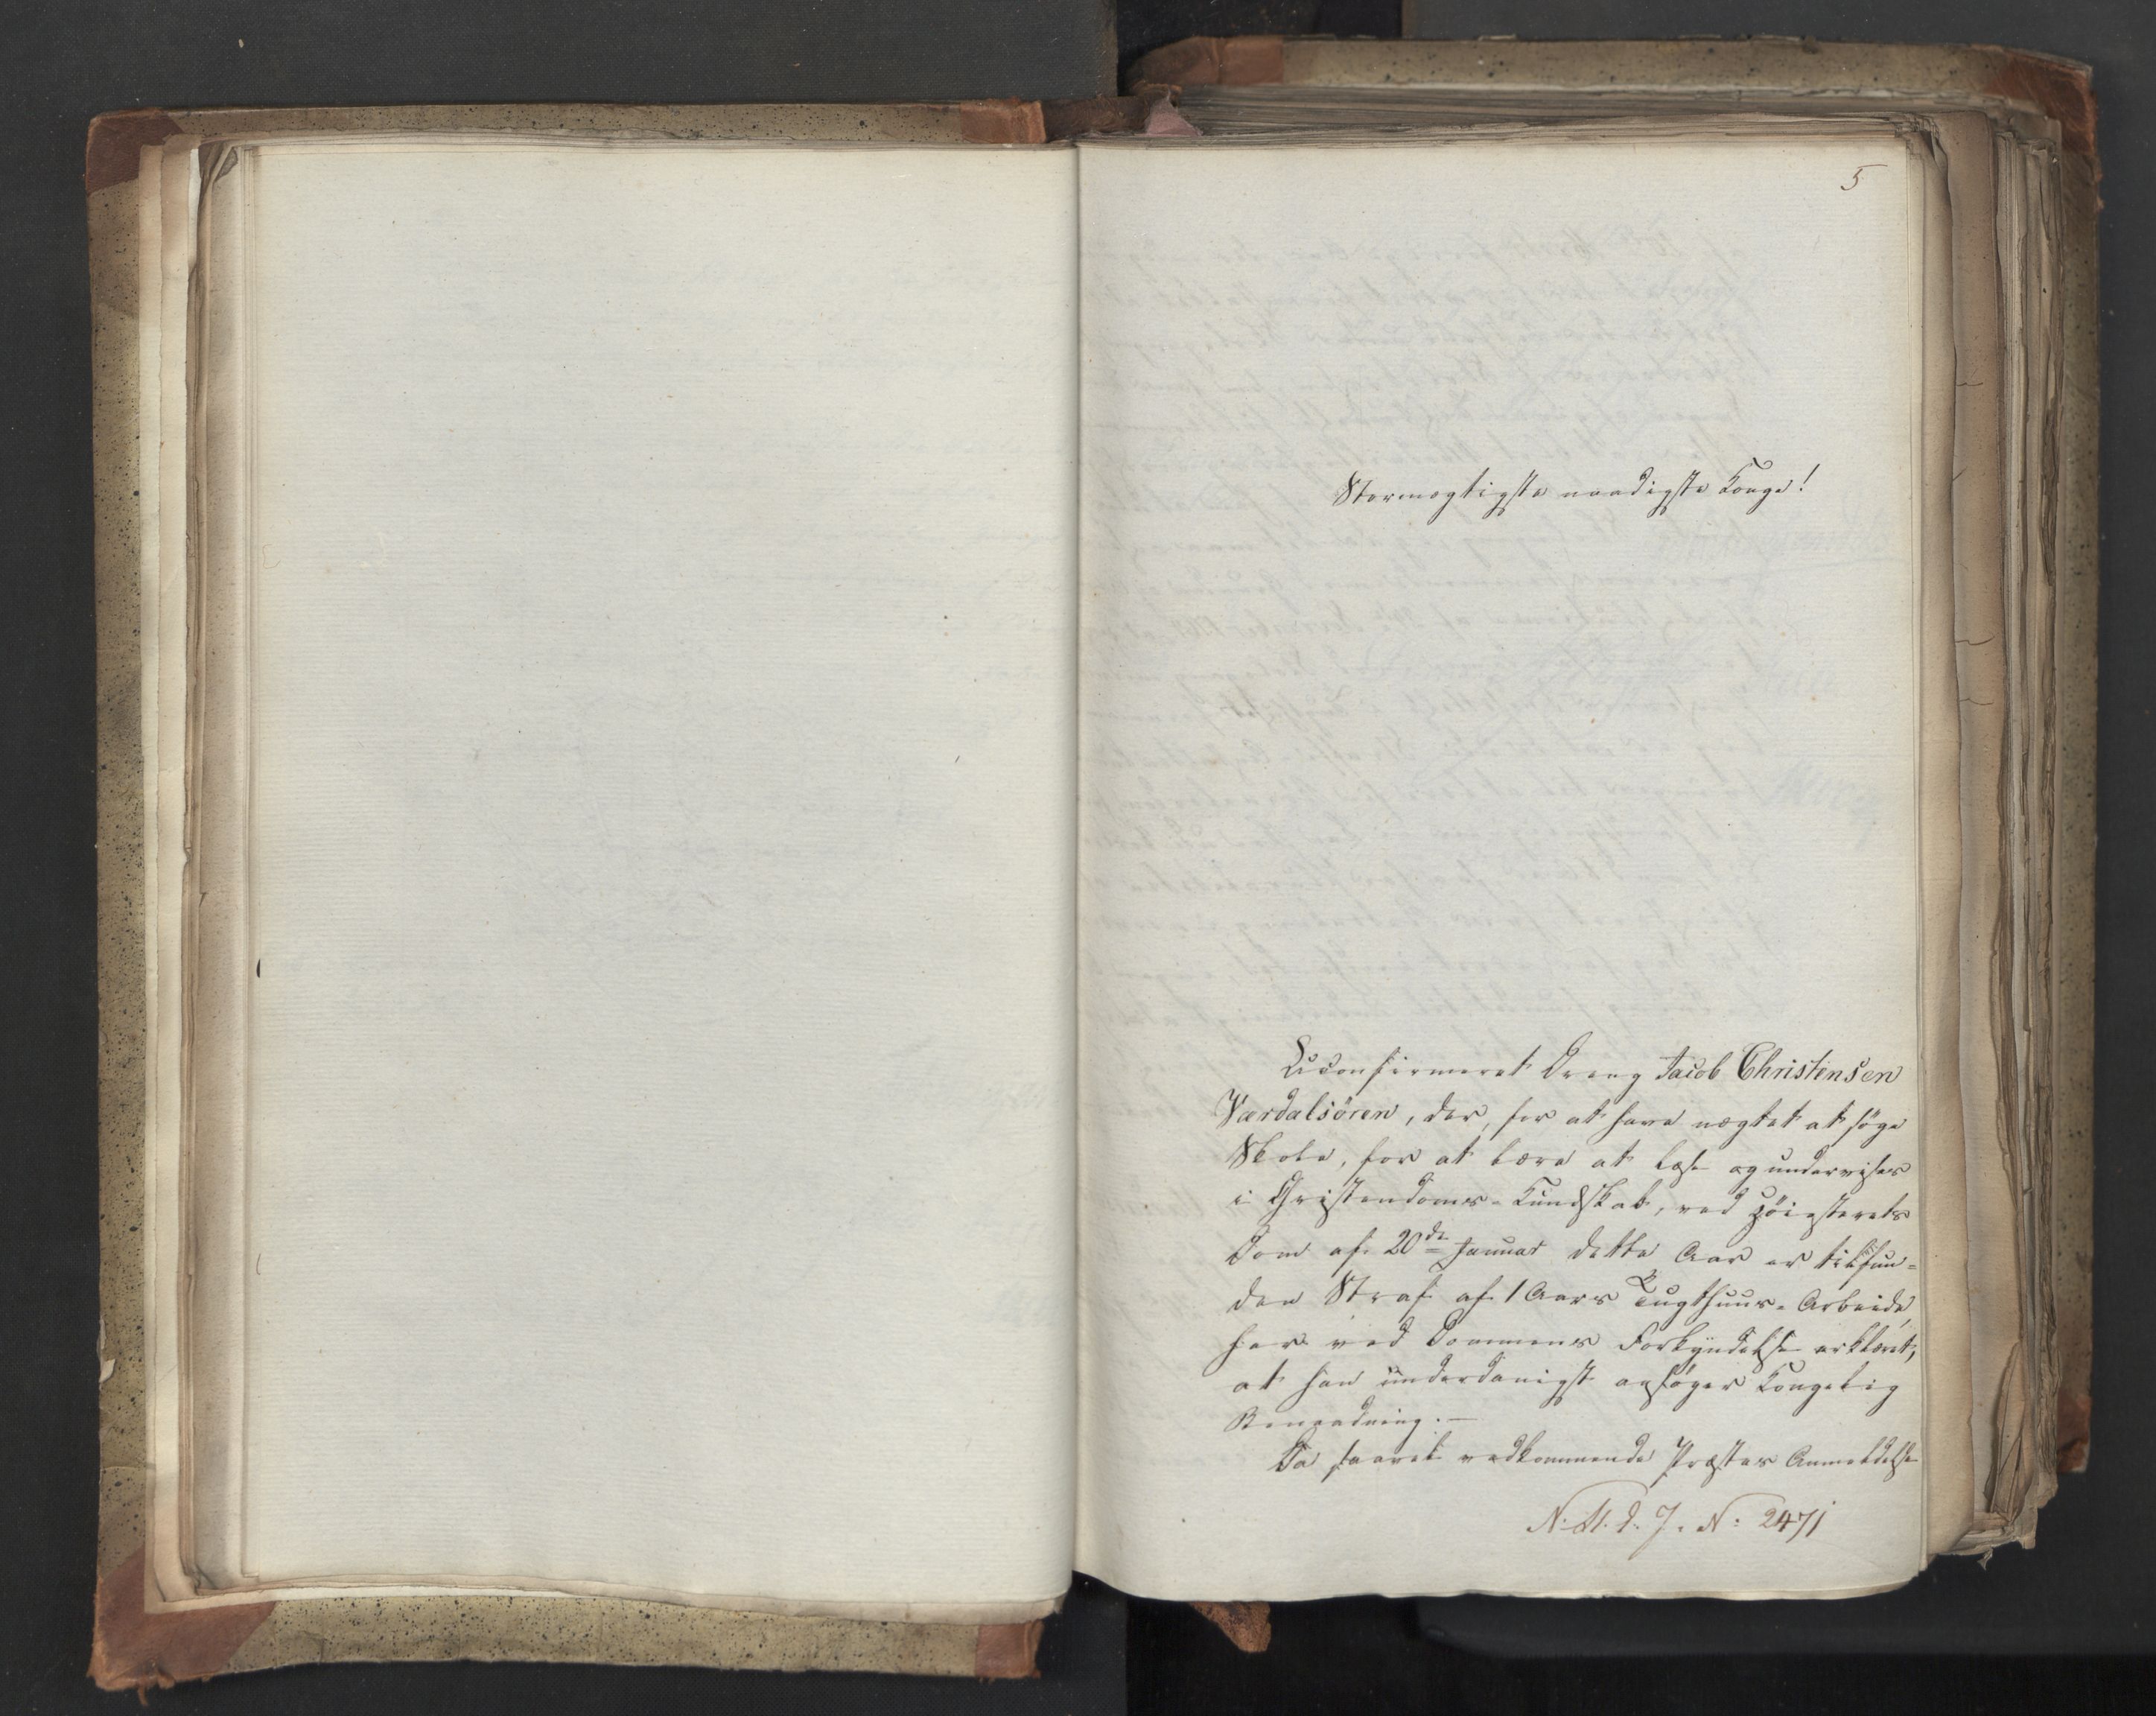 5
Stormægtigste naadigste Konge!
Uconfirmeret Dreng Jacob Christensen
Værdalsören, der, for at have nægtet at söge
Skole, for at lære at læse og undervises
i Christendoms-Kundskab, ved Höiesterets
Dom af 20de Januar dette Aar er tilfun-
den Straf af 1 Aars Tugthuus-Arbeide,
har ved Dommens Forkyndelse erklæret,
at han underdanigst ansöger Kongelig
Benaadning.—
Da saavel vedkommende Præstes Anmeldelse
N. 2471